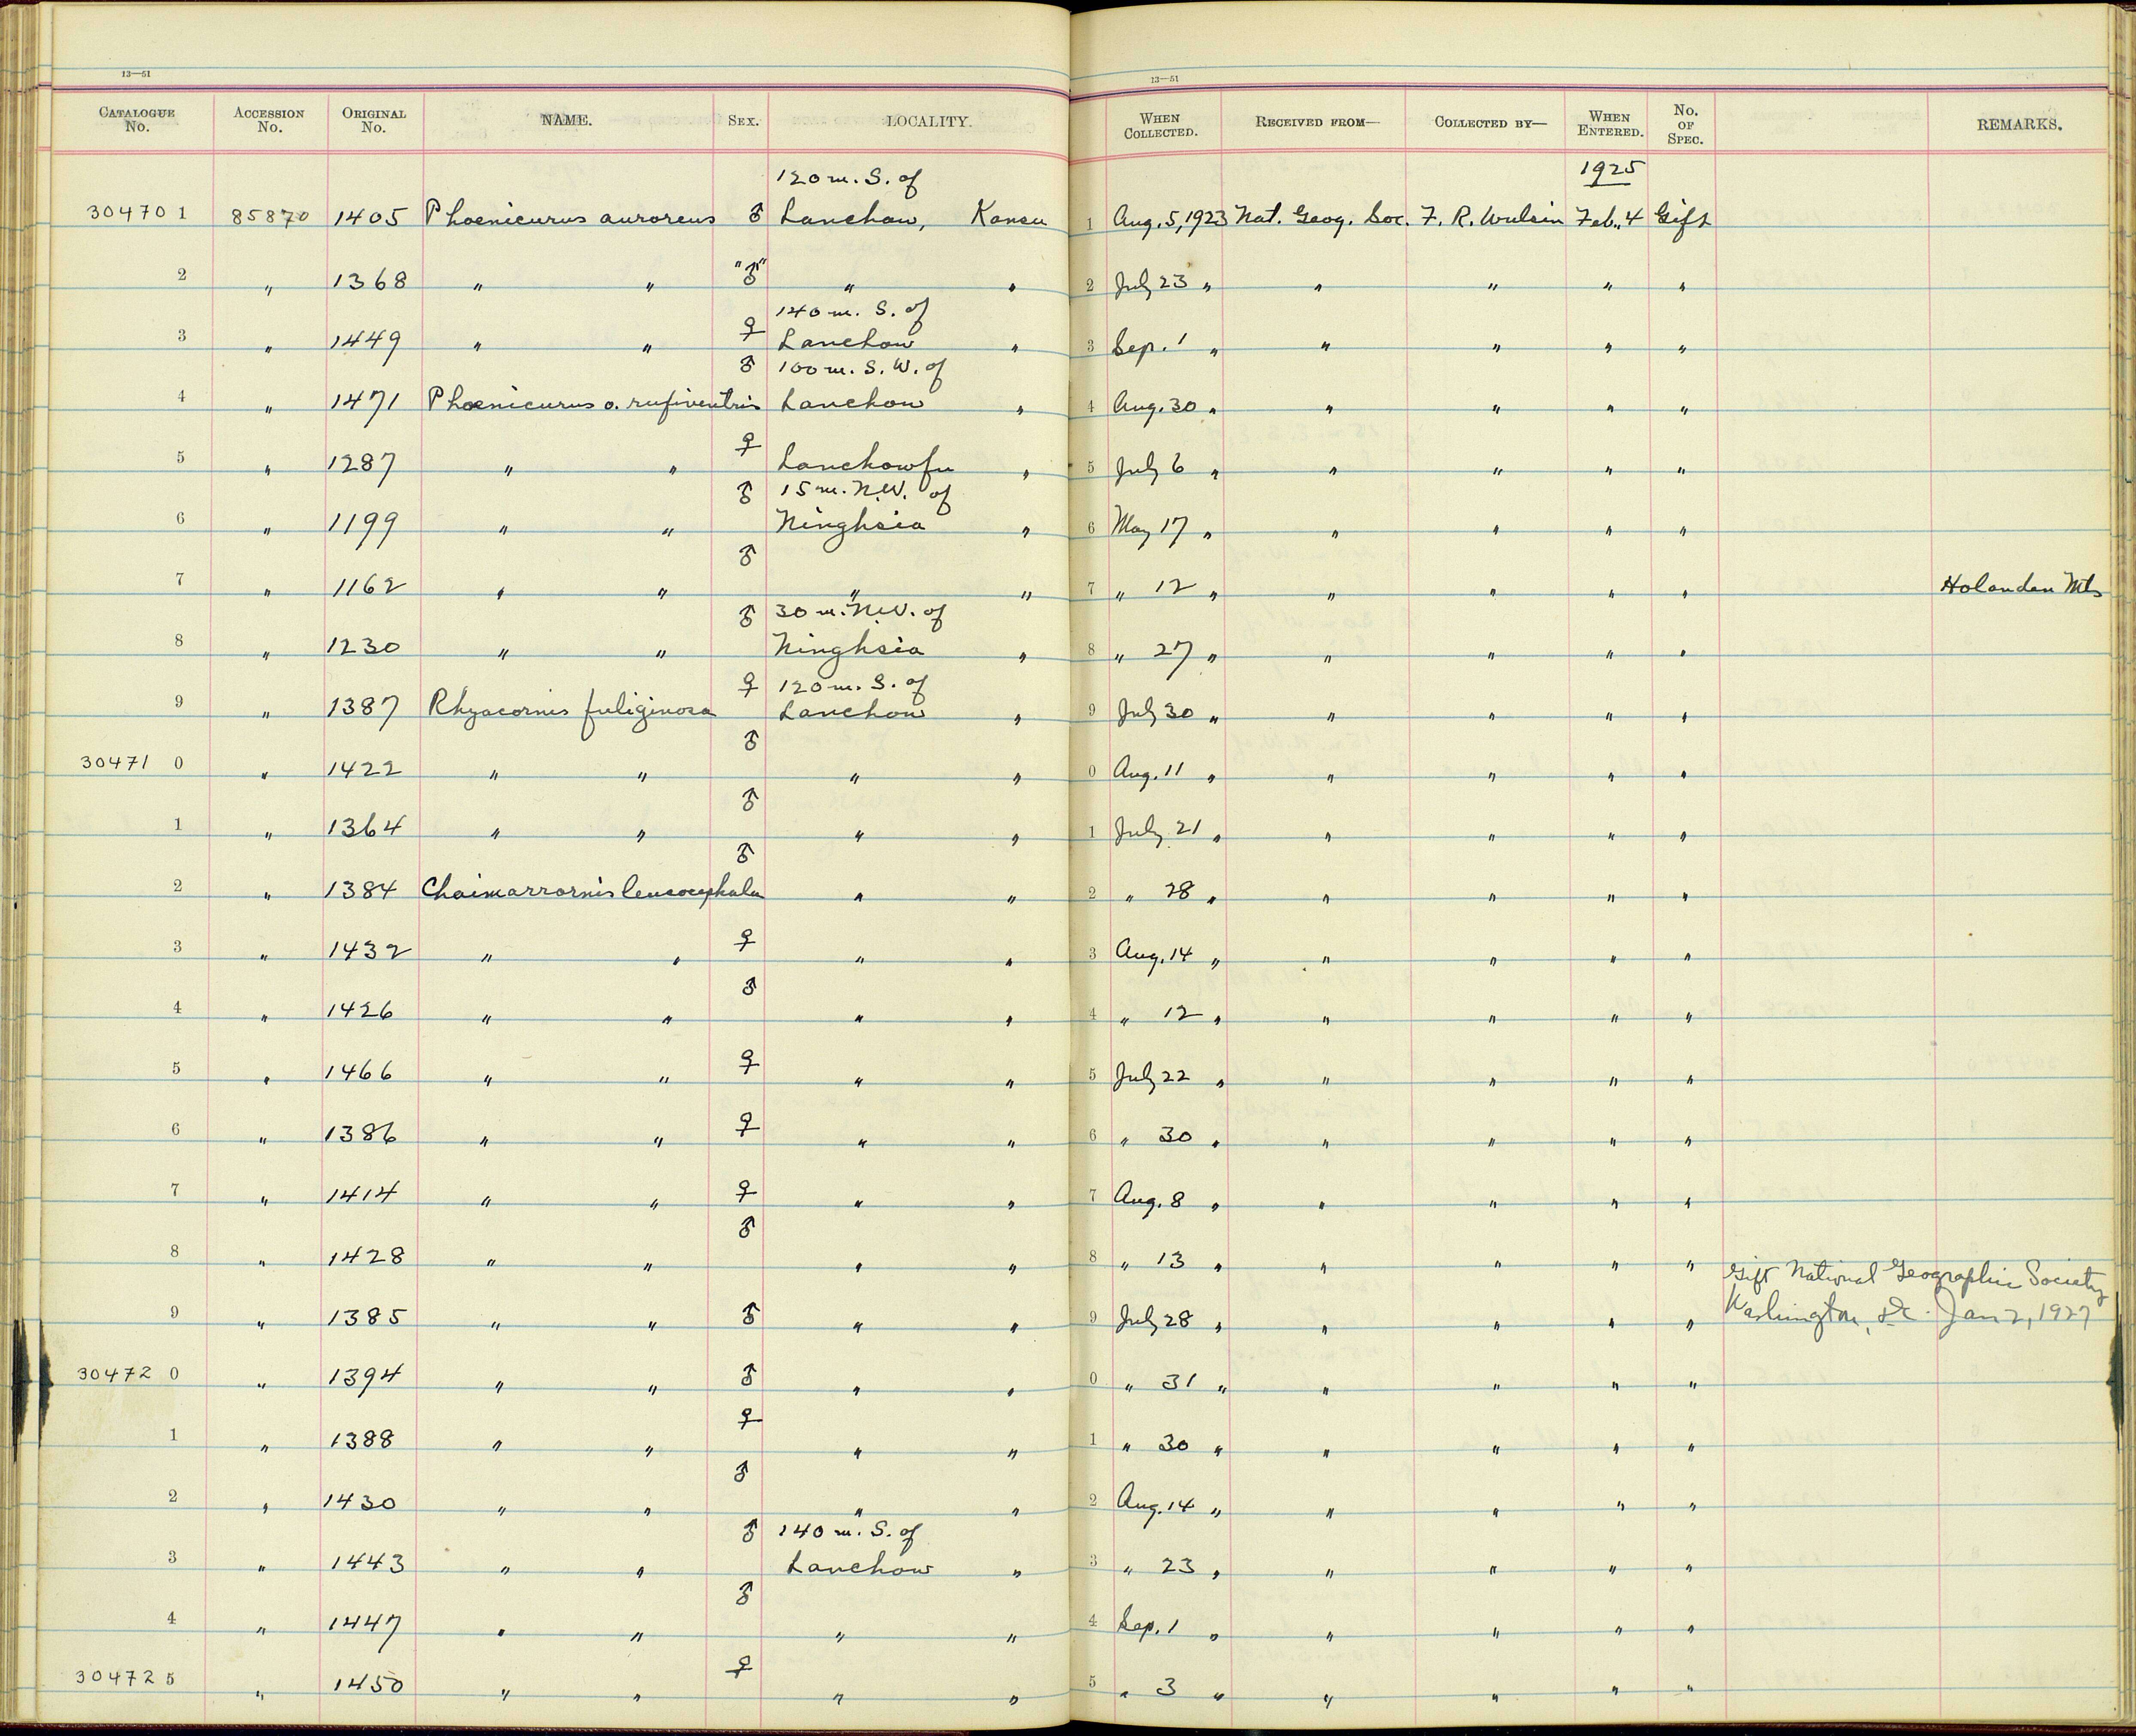 13—51 13—51
CATALOGUE No. ACCESSION No. ORIGINAL No. NAME. SEX. LOCALITY. WHEN COLLECTED. RECEIVED FROM— COLLECTED BY— WHEN ENTERED. No. OF SPEC. REMARKS.
120 m. S. of 1925
304701 85870 1405 Phoenicurus auroreus ♂ Lanchow, Kansu 1 Aug. 5, 1923 Nat. Geog. Soc. F. R. Wulsin Feb. 4 Gift
2 " 1368 " " "♂" " " 2 July 23 " " " " "
140 m. S. of
3 " 1449 " " ♀ Lanchow " 3 Sep. 1 " " " " "
100 m. S. W. of
4 " 1471 Phoenicurus o. rufiventris ♂ Lanchow " 4 Aug. 30 " " " " "
5 " 1287 " " ♀ Lanchowfu " 5 July 6 " " " " "
15 m. N.W. of
6 " 1199 " " ♂ Ninghsia " 6 May 17 " " " " "
7 " 1162 " " ♂ " " 7 " 12 " " " " " Holandan Mts
30 m. N.W. of
8 " 1230 " " ♂ Ninghsia " 8 " 27 " " " " "
120 m. S. of
9 " 1387 Rhyacornis fuliginosa ♀ Lanchow " 9 July 30 " " " " "
304710 " 1422 " " ♂ " " 0 Aug. 11 " " " " "
1 " 1364 " " ♂ " " 1 July 21 " " " " "
2 " 1384 Chaimarrornis leucocephala ♂ " " 2 " 28 " " " " "
3 " 1432 " " ♀ " " 3 Aug. 14 " " " " "
4 " 1426 " " ♂ " " 4 " 12 " " " " "
5 " 1466 " " ♀ " " 5 July 22 " " " " "
6 " 1386 " " ♀ " " 6 " 30 " " " " "
7 " 1414 " " ♀ " " 7 Aug. 8 " " " " "
8 " 1428 " " ♂ " " 8 " 13 " " " " " Gift National Geographic Society
9 " 1385 " " ♂ " " 9 July 28 " " " " " Washington, D.C. Jan 2, 1927
304720 " 1394 " " ♂ " " 0 " 31 " " " " "
1 " 1388 " " ♀ " " 1 " 30 " " " " "
2 " 1430 " " ♂ " " 2 Aug. 14 " " " " "
140 m. S. of
3 " 1443 " " ♂ Lanchow " 3 " 23 " " " " "
4 " 1447 " " ♂ " " 4 Sep. 1 " " " " "
304725 " 1450 " " ♀ " " 5 " 3 " " " " "